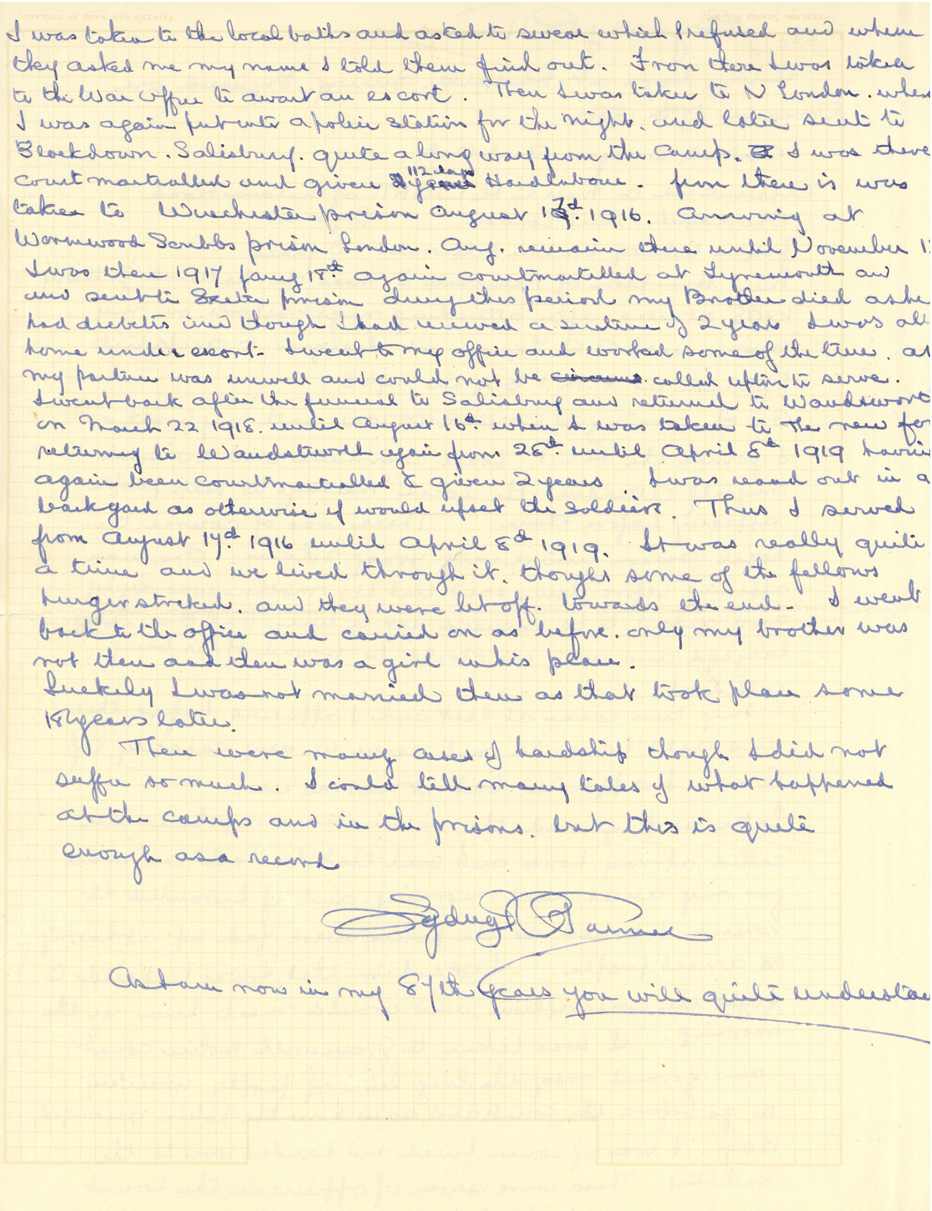 I was taken to the local baths and asked to swear which I refused and when
they asked me my name I told them find out. From there I was taken
to the War Office to await an escort. Then I was taken to N London. when
I was again put into a police station for the night. and later sent to
Blackdown. Salisbury. quite a long way from the camp. I was there
court martialled and given 112 days Hard labour. from there is was
taken to Winchester prison August 17th. 1916. Arriving at
Wormwood Scrubbs prison London. Aug. remain there until November
I was then 1917 Jany 18th again courtmartialled at Tynemouth an
and sent to Exeter prison during this period my Brother died as he
had diabetes and though I had received a sentence of 2 years I was all
home under escort. I went to my office and worked some of the time. as
my partner was unwell and could not be called upon to serve.
I went back after the funeral to Salisbury and returned to Wandswort
on March 22 1918. until August 16th. when I was taken to the new for
returning to Wandsworth again from 28th. until April 8th 1919 having
again been courtmartialled & given 2 years. I was read out in a
backyard as otherwise if would upset the Soldiers. Thus I served
from August 17th. 1916 until April 8th 1919. It was really quite
a time and we lived through it. though some of the fellows
hunger striked. and they were let off. towards the end - I went
back to the office and carried on as before. only my brother was
not then and then was a girl in his place.
Luckily I was not married then as that took place some
18 years later.
There were many cases of hardship though I did not
suffer so much. I could tell many tales of what happened
at the camps and in the prisons. but this is quite
enough as a record
Sydney
As I am now in my 87th years you will quite understan